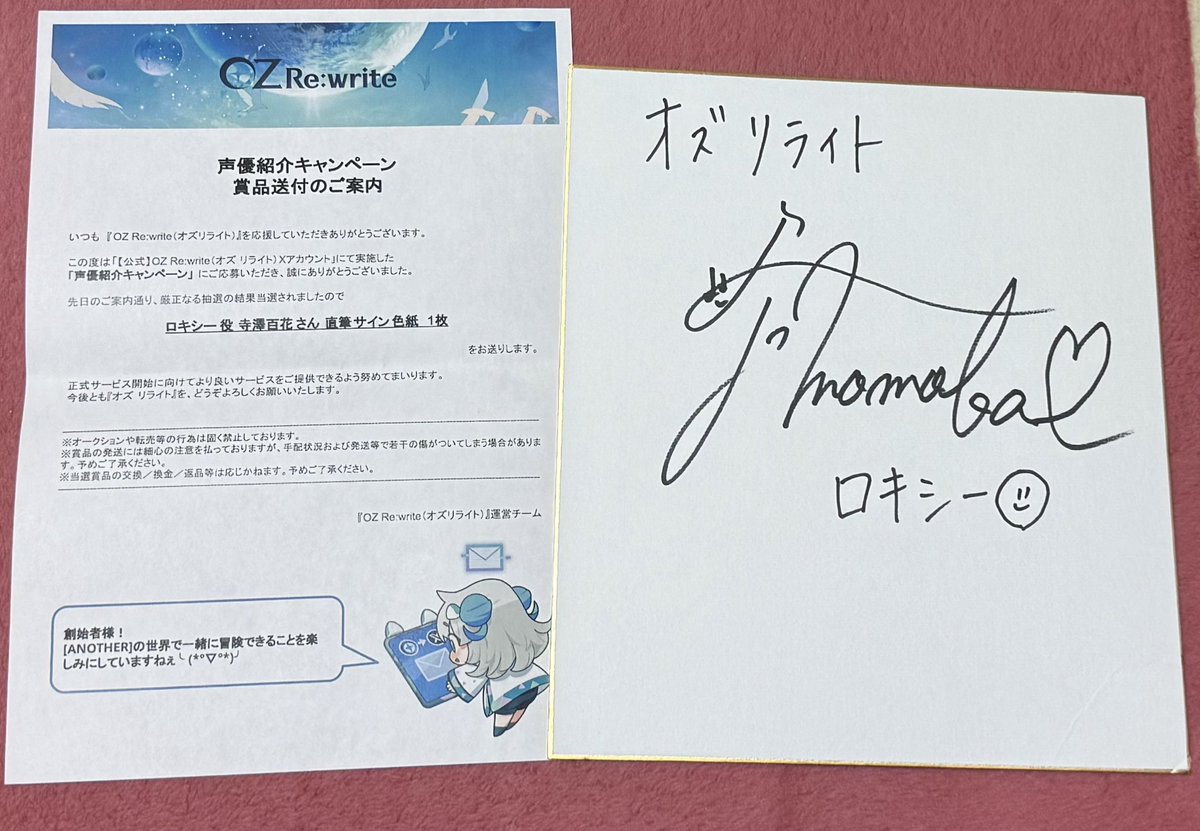 OZ Re:write
声優紹介キャンペーン
賞品送付のご案内
いつも『OZ Re:write(オズリライト)』を応援していただきありがとうございます。
この度は「【公式】OZ Re:write(オズ リライト)Xアカウント」にて実施した
「声優紹介キャンペーン」にご応募いただき、誠にありがとうございました。
先日のご案内通り、厳正なる抽選の結果当選されましたので
ロキシー役 寺澤百花さん 直筆サイン色紙 1枚
をお送りします。
正式サービス開始に向けてより良いサービスをご提供できるよう努めてまいります。
今後とも『オズ リライト』を、どうぞよろしくお願いいたします。
※オークションや転売等の行為は固く禁止しております。
※賞品の発送には細心の注意を払っておりますが、手配状況および発送等で若干の傷がついてしまう場合がありま
す。予めご了承ください。
※当選賞品の交換/換金/返品等は応じかねます。予めご了承ください。
『OZ Re:write(オズリライト)』運営チーム
創始者様!
[ANOTHER]の世界で一緒に冒険できることを楽
しみにしていますねぇ╰(*°▽°*)╯
オズ リライト
momoka
ロキシー